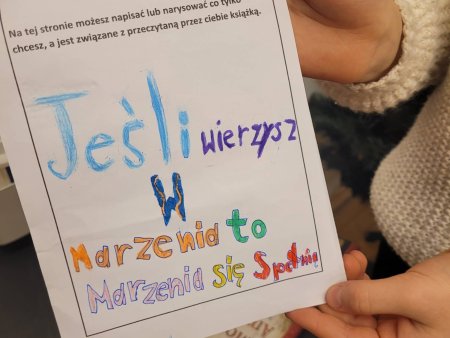 Na tej stronie możesz napisać lub narysować co tylko
chcesz, a jest związane z przeczytaną przez ciebie książką.
Jeśli wierzysz
W
Marzenia to
Marzenia się Spełnią